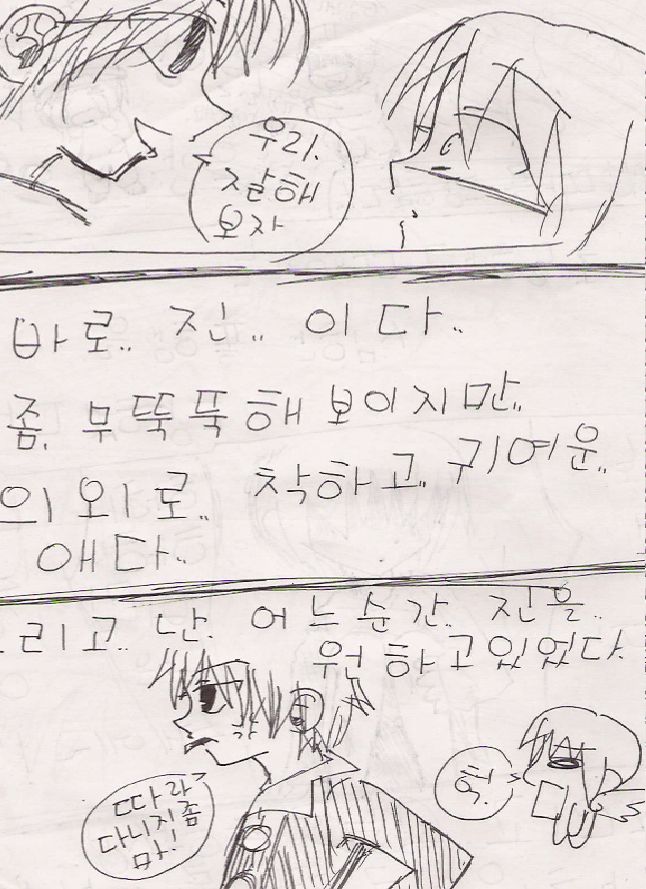 우리.
잘해
보자
바로.. 진.. 이다..
좀. 무뚝뚝해 보이지만..
의외로.. 착하고.. 귀여운..
애다..
리고.. 난. 어느순간.. 진을..
원하고있었다.
따라
다니지좀
마!
헉.